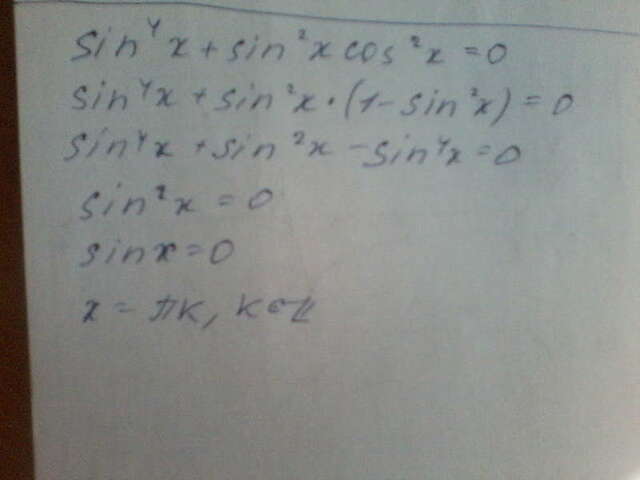 sin⁴x + sin²x cos²x = 0
sin⁴x + sin²x · (1 - sin²x) = 0
sin⁴x + sin²x - sin⁴x = 0
sin²x = 0
sinx = 0
x = πk, k∈Z